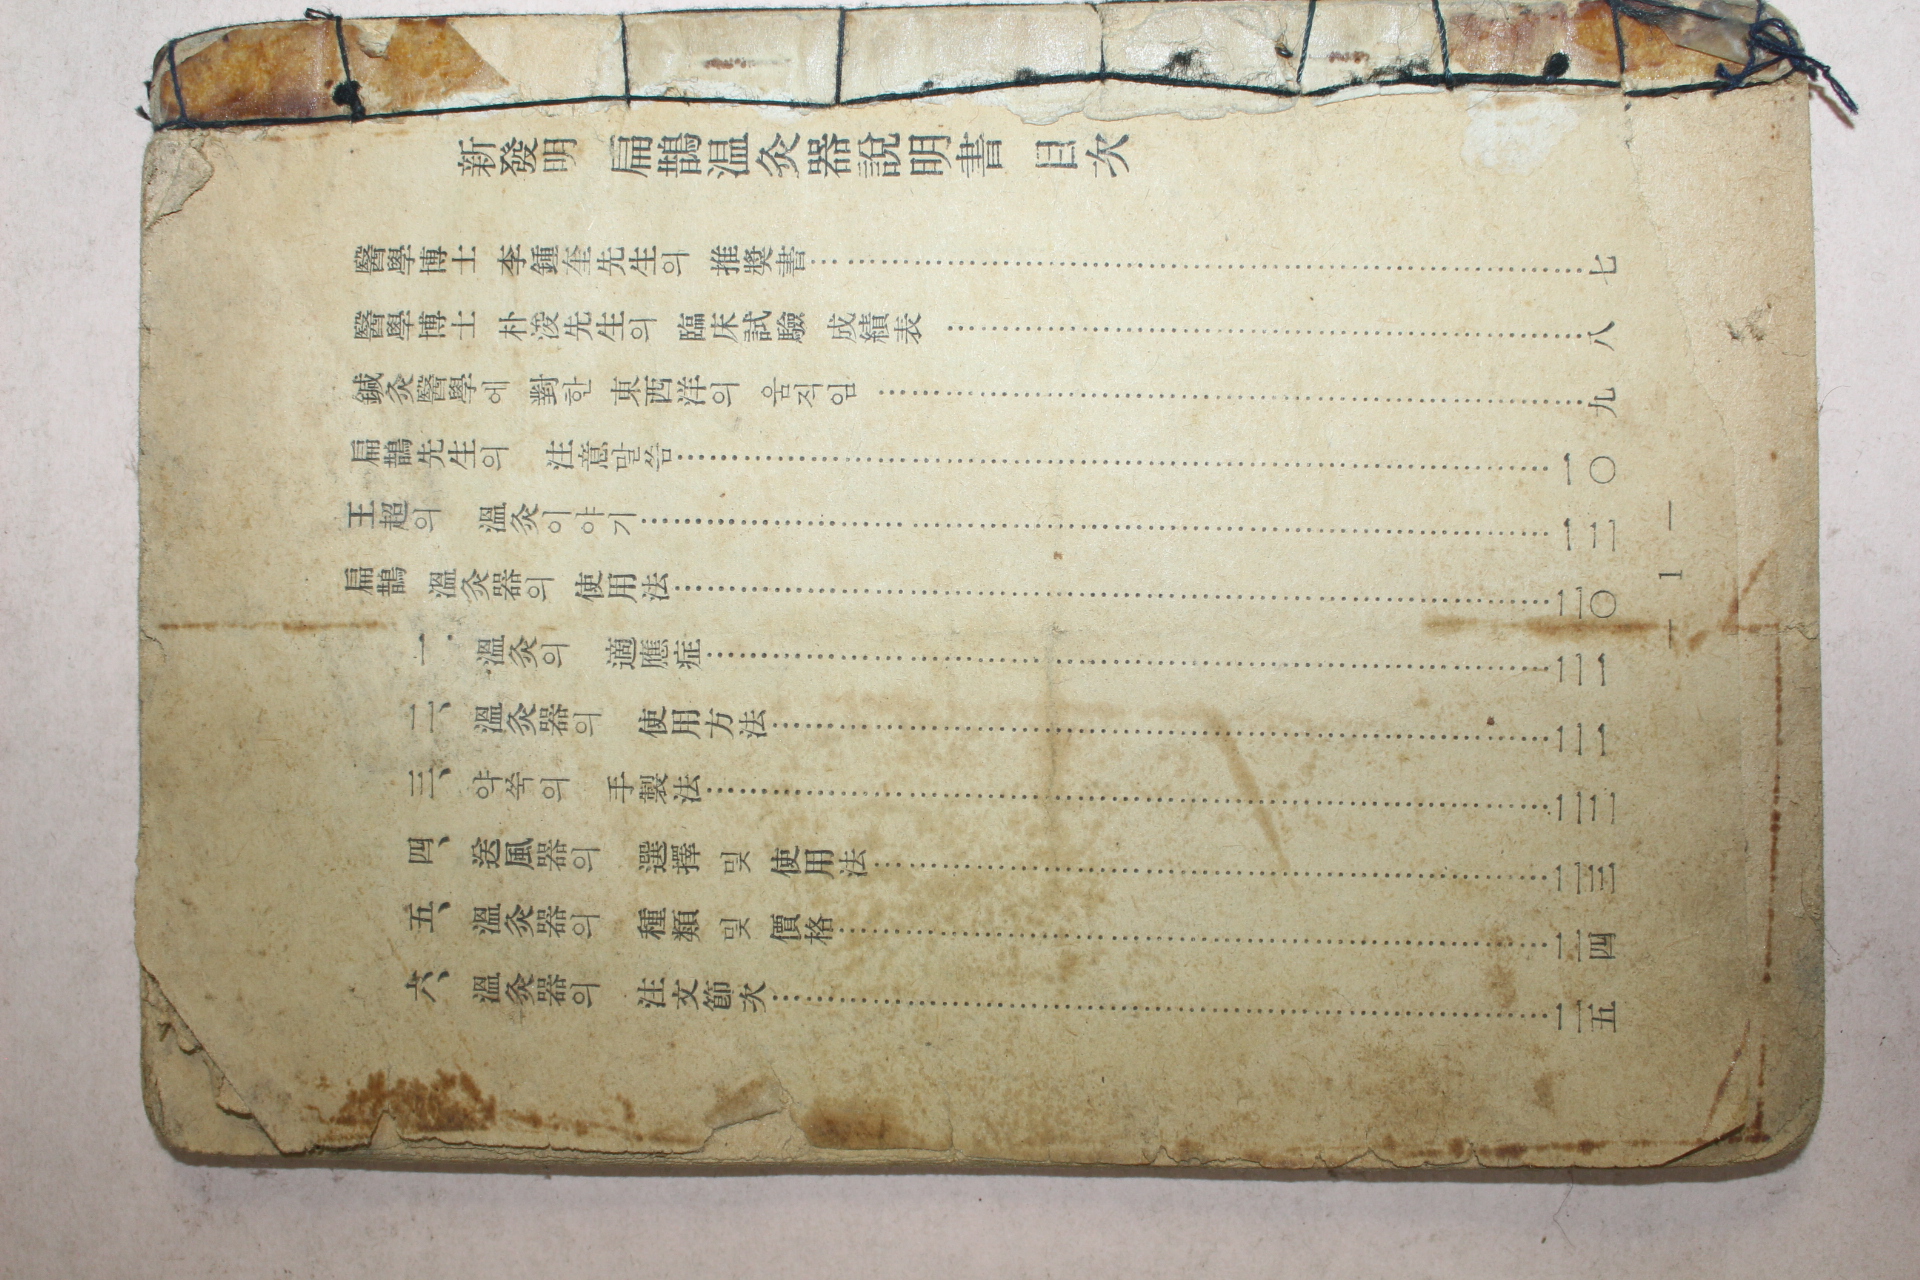 新發明 扁鵲溫灸器說明書 目次
醫學博士 李鍾奎先生의 推奬書……七
醫學博士 朴浚先生의 臨床試驗 成績表……八
鍼灸醫學에 對한 東西洋의 움직임……九
扁鵲先生의 注意말씀……一〇
王超의 溫灸이야기……一二
扁鵲 溫灸器의 使用法……二〇
一、溫灸의 適應症……二一
二、溫灸器의 使用方法……二一
三、약쑥의 手製法……二二
四、送風器의 選擇 및 使用法……二三
五、溫灸器의 種類 및 價格……二四
六、溫灸器의 注文節次……二五
— 1 —